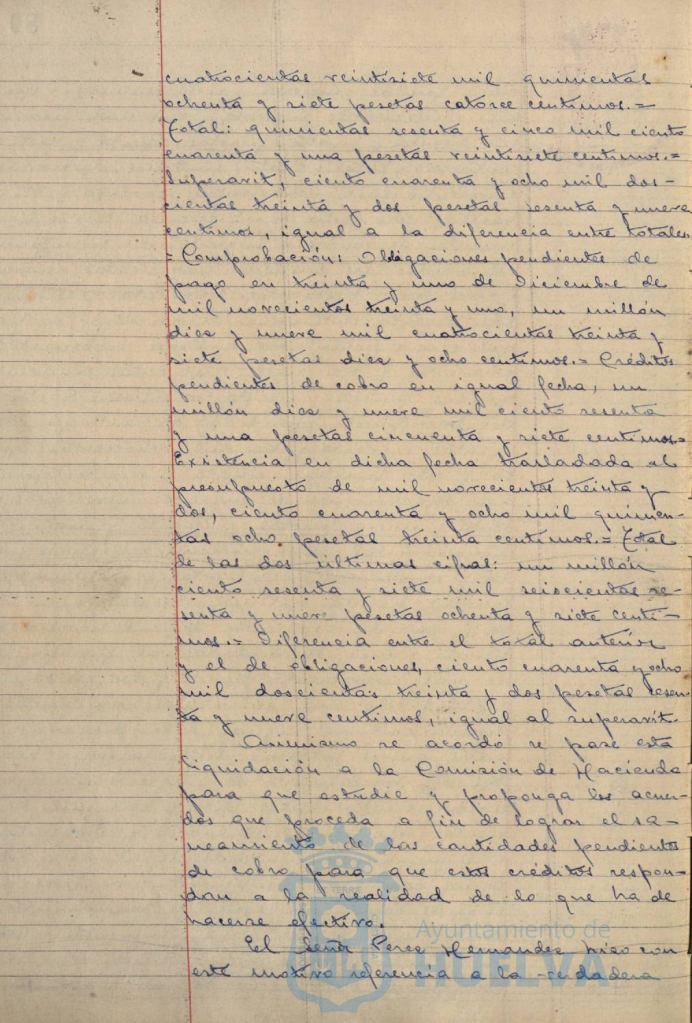 cuatrocientas veintisiete mil quinientas
ochenta y siete pesetas catorce centimos.=
Total: quinientas sesenta y cinco mil ciento
cuarenta y una pesetas veintisiete centimos.=
Superavit, ciento cuarenta y ocho mil dos-
cientas treinta y dos pesetas sesenta y nueve
centimos, igual a la diferencia entre totales.
= Comprobación: Obligaciones pendientes de
pago en treinta y uno de Diciembre de
mil novecientos treinta y uno, un millón
diez y nueve mil cuatrocientas treinta y
siete pesetas diez y ocho centimos.= Créditos
pendientes de cobro en igual fecha, un
millón diez y nueve mil ciento sesenta
y una pesetas cincuenta y siete centimos.=
Existencia en dicha fecha trasladada al
presupuesto de mil novecientos treinta y
dos, ciento cuarenta y ocho mil quinien-
tas ocho pesetas treinta centimos.= Total
de las dos últimas cifras: un millón
ciento sesenta y siete mil seiscientas se-
senta y nueve pesetas ochenta y siete centi-
mos.= Diferencia entre el total anterior
y el de obligaciones, ciento cuarenta y ocho
mil doscientas treinta y dos pesetas sesen-
ta y nueve centimos, igual al superavit.
Asimismo se acordó se pase esta
liquidación a la Comisión de Hacienda
para que estudie y proponga los acuer-
dos que proceda a fin de lograr el sa-
neamiento de las cantidades pendientes
de cobro para que estos créditos respon-
dan a la realidad de lo que ha de
hacerse efectivo.
El Señor Perez Hernandez hizo con
este motivo referencia a la verdadera
Ayuntamiento de
HUELVA